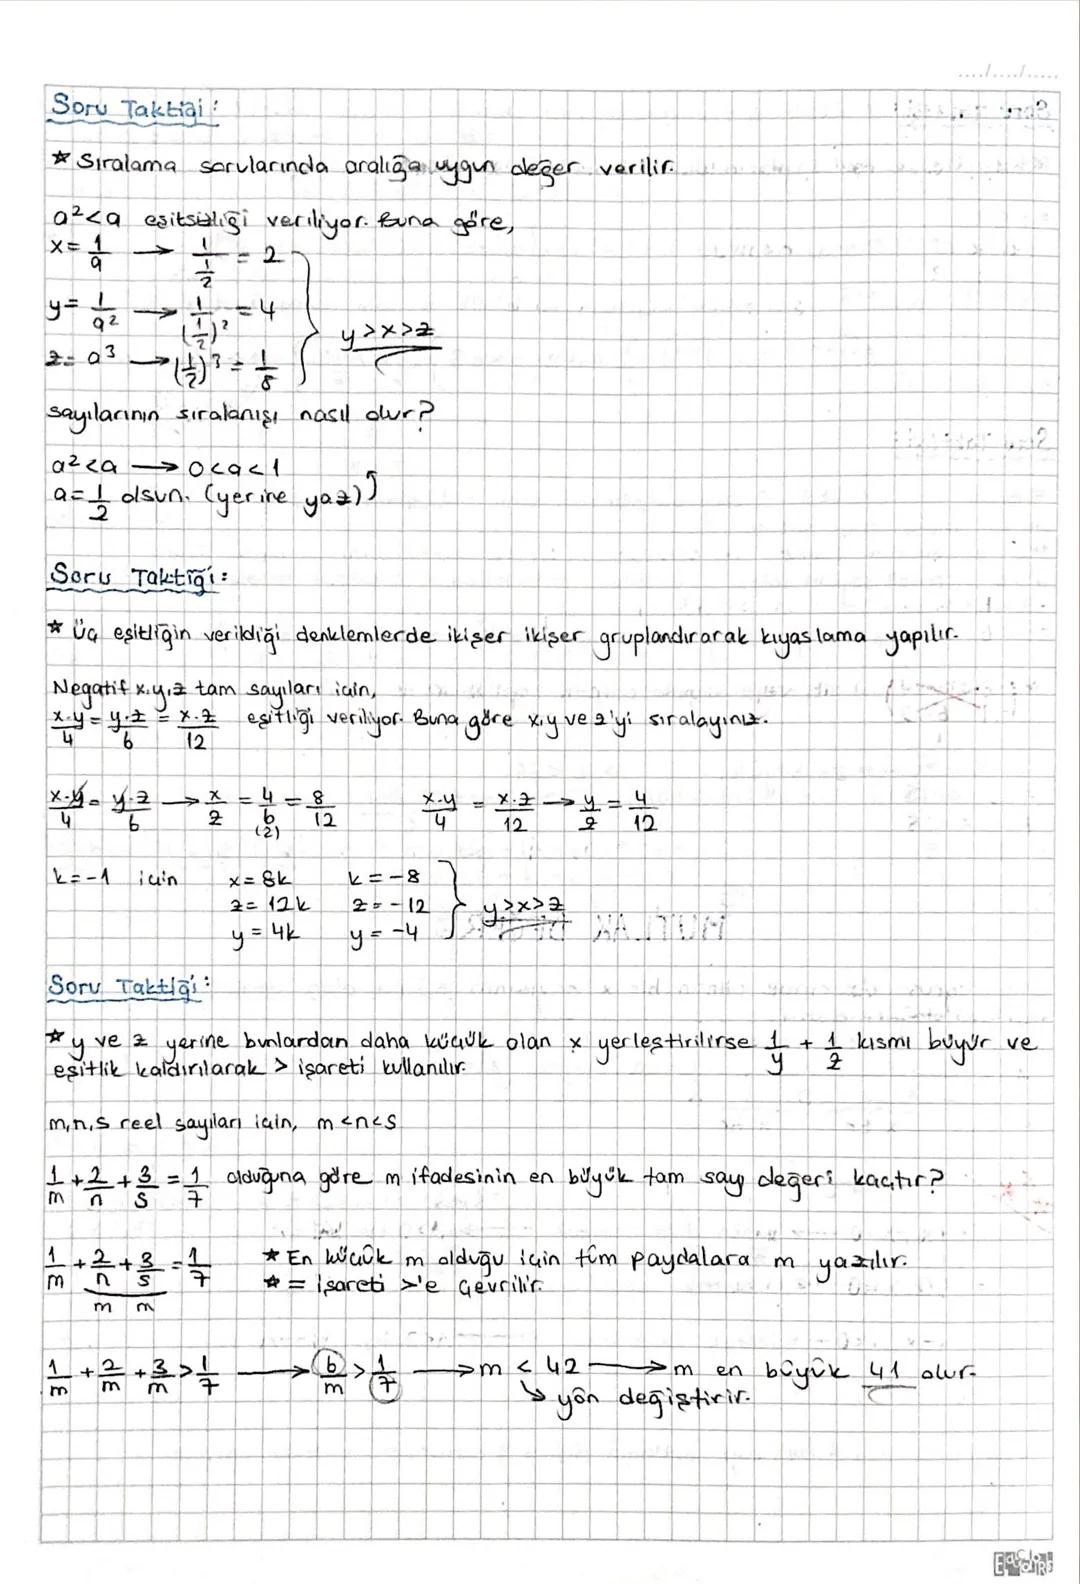 Soru Taktiği:
* Sıralama sorularında aralığa uygun değer verilir.
a²<a eşitsizliği veriliyor. Buna göre,
x = 1/a → 1/(1/2) = 2
y = 1/a² → 1/(1/2)² = 4
y>x>z
z = a³ → (1/2)³ = 1/8
sayılarının sıralanışı nasıl olur?
a²<a → 0<a<1
a = 1/2 olsun. (yerine yaz)
Soru Taktiği:
* Üç eşitliğin verildiği denklemlerde ikişer ikişer gruplandırarak kıyaslama yapılır.
Negatif x,y,z tam sayıları için,
x.y/4 = y.z/6 = x.z/12 eşitliği veriliyor. Buna göre x,y ve z'yi sıralayınız.
x.y/4 = y.z/6 → x/z = 4/6 (2) = 8/12   x.y/4 = x.z/12 → y/z = 4/12
k=-1 için   x = 8k   k = -8
z = 12k   z = -12   y>x>z
y = 4k   y = -4
Soru Taktiği:
* y ve z yerine bunlardan daha küçük olan x yerleştirilirse 1/y + 1/z kısmı büyür ve
eşitlik kaldırılarak > işareti kullanılır.
m,n,s reel sayıları için, m<n<s
1/m + 2/n + 3/s = 1/7 olduğuna göre m ifadesinin en büyük tam sayı değeri kaçtır?
1/m + 2/n + 3/s = 1/7   * En küçük m olduğu için tüm paydalara m yazılır.
m m   * = işareti >'e çevrilir.
1/m + 2/m + 3/m > 1/7 → 6/m > 1/7 → m < 42 → m en büyük 41 olur.
↳ yön değiştirir.